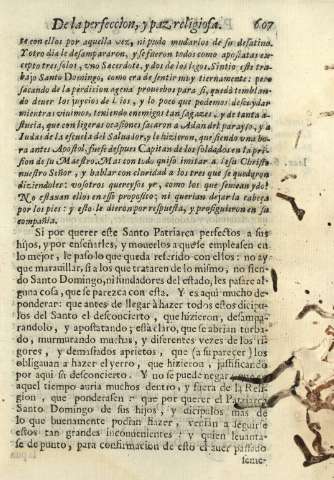 De la perfeccion, y paz religiosa. 607
se con ellos por aquella vez, ni pudo mudarlos de su desatino.
Y otro dia le desampararon, y se fueron todos como apostatas ex-
cepto tres solos, uno Sacerdote, y dos de los legos. Sintio este tra-
bajo Santo Domingo, como era de sentir muy tiernamente: pero
sacando de la perdicion agena provechos para si, quedò temblan-
do de ver los juycios de Dios, y lo poco que podemos descuydar
mientras vivimos, teniendo enemigos tan sagazes, y de tanta a-
stucia, que con ligeras ocasiones sacaron a Adan del parayso, y a
Judas de la escuela del Salvador, y le hizieron, que siendo una ho-
ra antes Apostol, fuese despues Capitan de los soldados en la pri-
sion de su Maestro. Mas con todo quiso imitar a Jesu Christo
nuestro Señor, y hablar con claridad a los tres que se quedaron
diziendoles: vosotros quereys os yr, como los que fueron ydos?
No estavan ellos en esse proposito; ni querian dejar la cabeça
por los pies: y esto le dieron por respuesta, y prosiguieron en su
compañia.
Si por querer este Santo Patriarca perfectos a sus
hijos, y por enseñarles, y moverlos a que se empleasen en
lo mejor, le paso lo que queda referido con ellos: no ay
que maravillar, si a los que trataren de lo mismo, no sien-
do Santo Domingo, ni fundadores del estado, les pasare al-
guna cosa, que se parezca con esta. Y es aqui mucho de
ponderar: que antes de llegar à hazer todos estos dicipu-
los del Santo el desconcierto, que hizieron, desampa-
randolo, y apostatando; està claro, que se abrian turba-
do, murmurando muchas, y diferentes vezes de los ri-
gores, y demasiados aprietos, que (a su parecer) los
obligavan à hazer el yerro, que hizieron, justificando
por aqui su desconcierto. Y no se puede negar,
aquel tiempo auria muchos dentro, y fuera de la Reli-
gion, que ponderasen que por querer el Patriarca
Santo Domingo de sus hijos, y dicipulos mas de
lo que buenamente podian hazer, venian a seguirse
estos tan grandes inconvenientes: y quien levanta-
se de punto, para confirmacion de esto el aver pasado
seme-